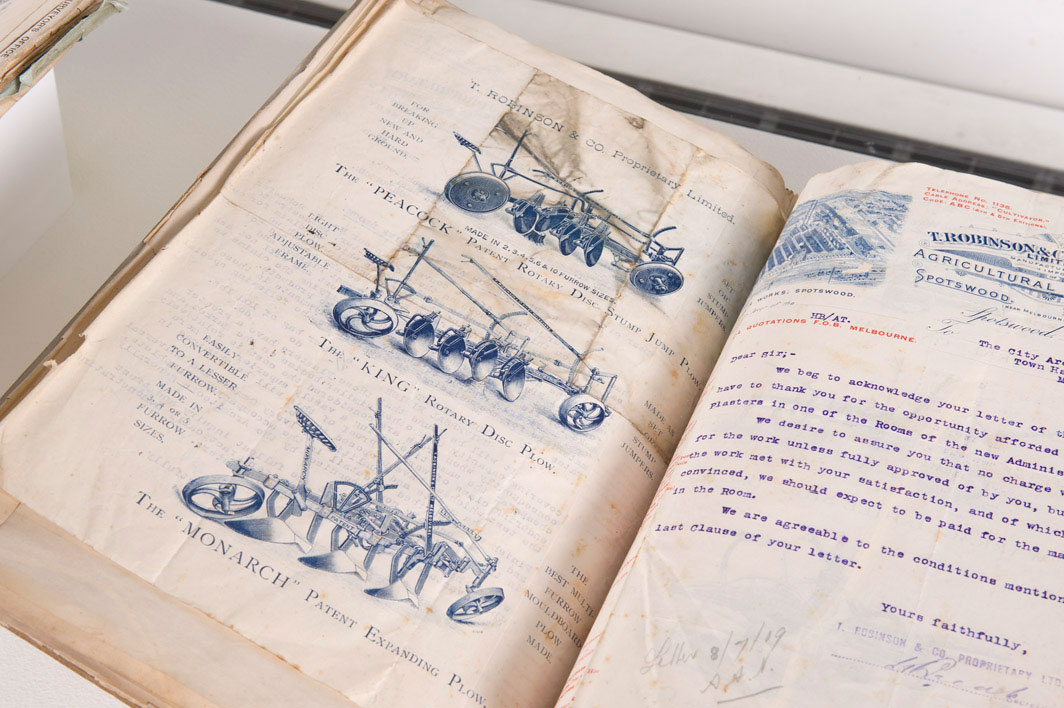 SURVEYOR'S OFFICE
T. ROBINSON & CO. Proprietary Limited.
FOR
BREAKING
UP
NEW AND
HARD
GROUND.
THE "PEACOCK" PATENT ROTARY DISC STUMP JUMP PLOW.
MADE IN 2,3,4,5,6 & 10 FURROW SIZES.
SET
STUMP
JUMPERS.
LIGHT
DISC
PLOW.
ADJUSTABLE
FRAME.
THE "KING" ROTARY DISC PLOW.
MADE AS
SET
STUMP-
JUMPERS.
EASILY
CONVERTIBLE
TO A LESSER
FURROW.
MADE IN
FURROW
SIZES.
THE "MONARCH" PATENT EXPANDING PLOW.
THE
BEST MULTI-
FURROW
MOULDBOARD
PLOW
MADE.
TELEPHONE No. 1136.
CABLE ADDRESS, "CULTIVATOR."
CODE: ABC 4TH & 5TH EDITIONS.
T. ROBINSON & C
LIMI
AGRICULTURAL
SPOTSWOOD,
NEAR MELBOU
WORKS: SPOTSWOOD.
Spotswood
HB/AT.
To
QUOTATIONS F.O.B. MELBOURNE
The City Arc
Town Ha
Dear Sir;-
We beg to acknowledge your letter of th
have to thank you for the opportunity afforded
Plasters in one of the Rooms of the new Adminis
We desire to assure you that no charge
for the work unless fully approved of by you, bu
the work met with your satisfaction, and of which
convinced, we should expect to be paid for the ma
in the Room.
We are agreeable to the conditions mention
last Clause of your letter.
Yours faithfully,
T. ROBINSON & CO. PROPRIETARY LTD.
Letter 8/7/09